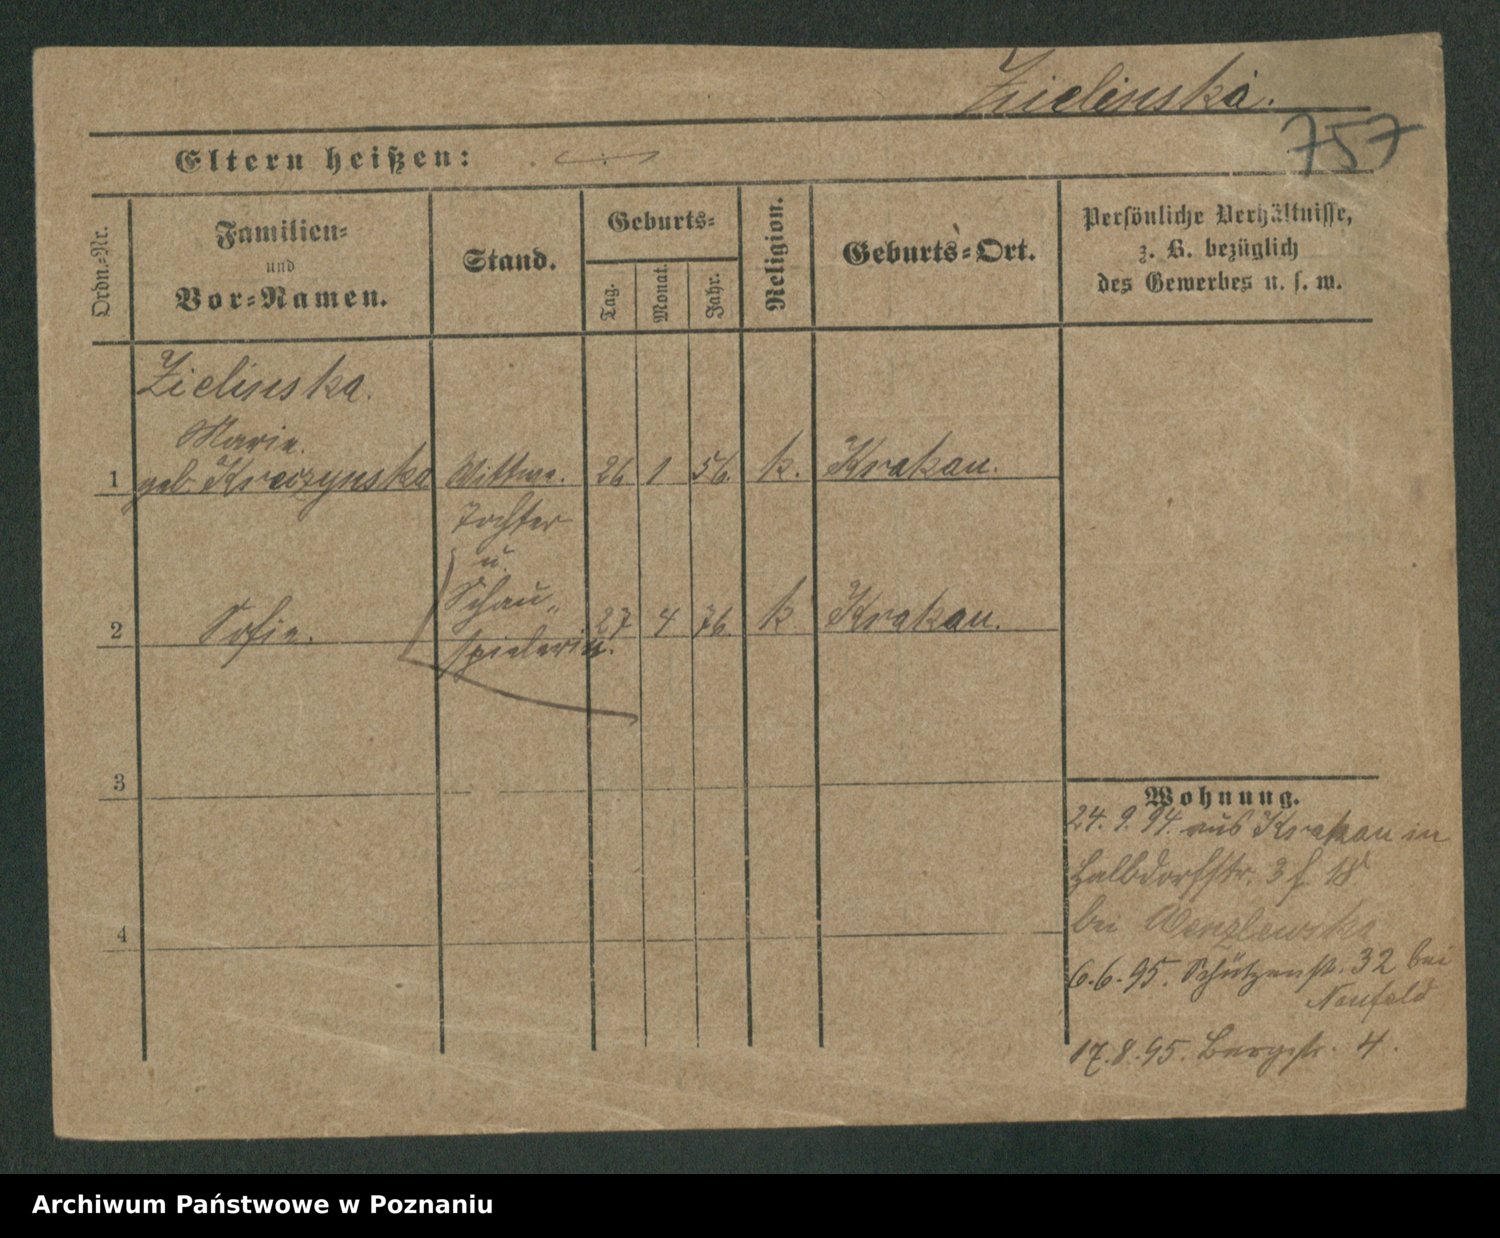 Zielinska.
757
Eltern heißen:
Ordn.-Nr.
Familien-
und
Vor-Namen.
Stand.
Geburts-
Tag.
Monat.
Jahr.
Religion.
Geburts-Ort.
Persönliche Verhältnisse,
z. B. bezüglich
des Gewerbes u. s. w.
Zielinska.
Marie.
1 geb. Kreczynska Wittwe. 26 1 56. k. Krakau.
Tochter
u.
Schau-
2 Sofie. 27 4 76. k Krakau.
spielerin.
3
4
Wohnung.
24. 9. 94. aus Krakau in
Halbdorfstr. 3 f. 18
bei
6.6.95. Schützenstr. 32 bei
Neufeld
17.8.95. Bergstr. 4.
Archiwum Państwowe w Poznaniu